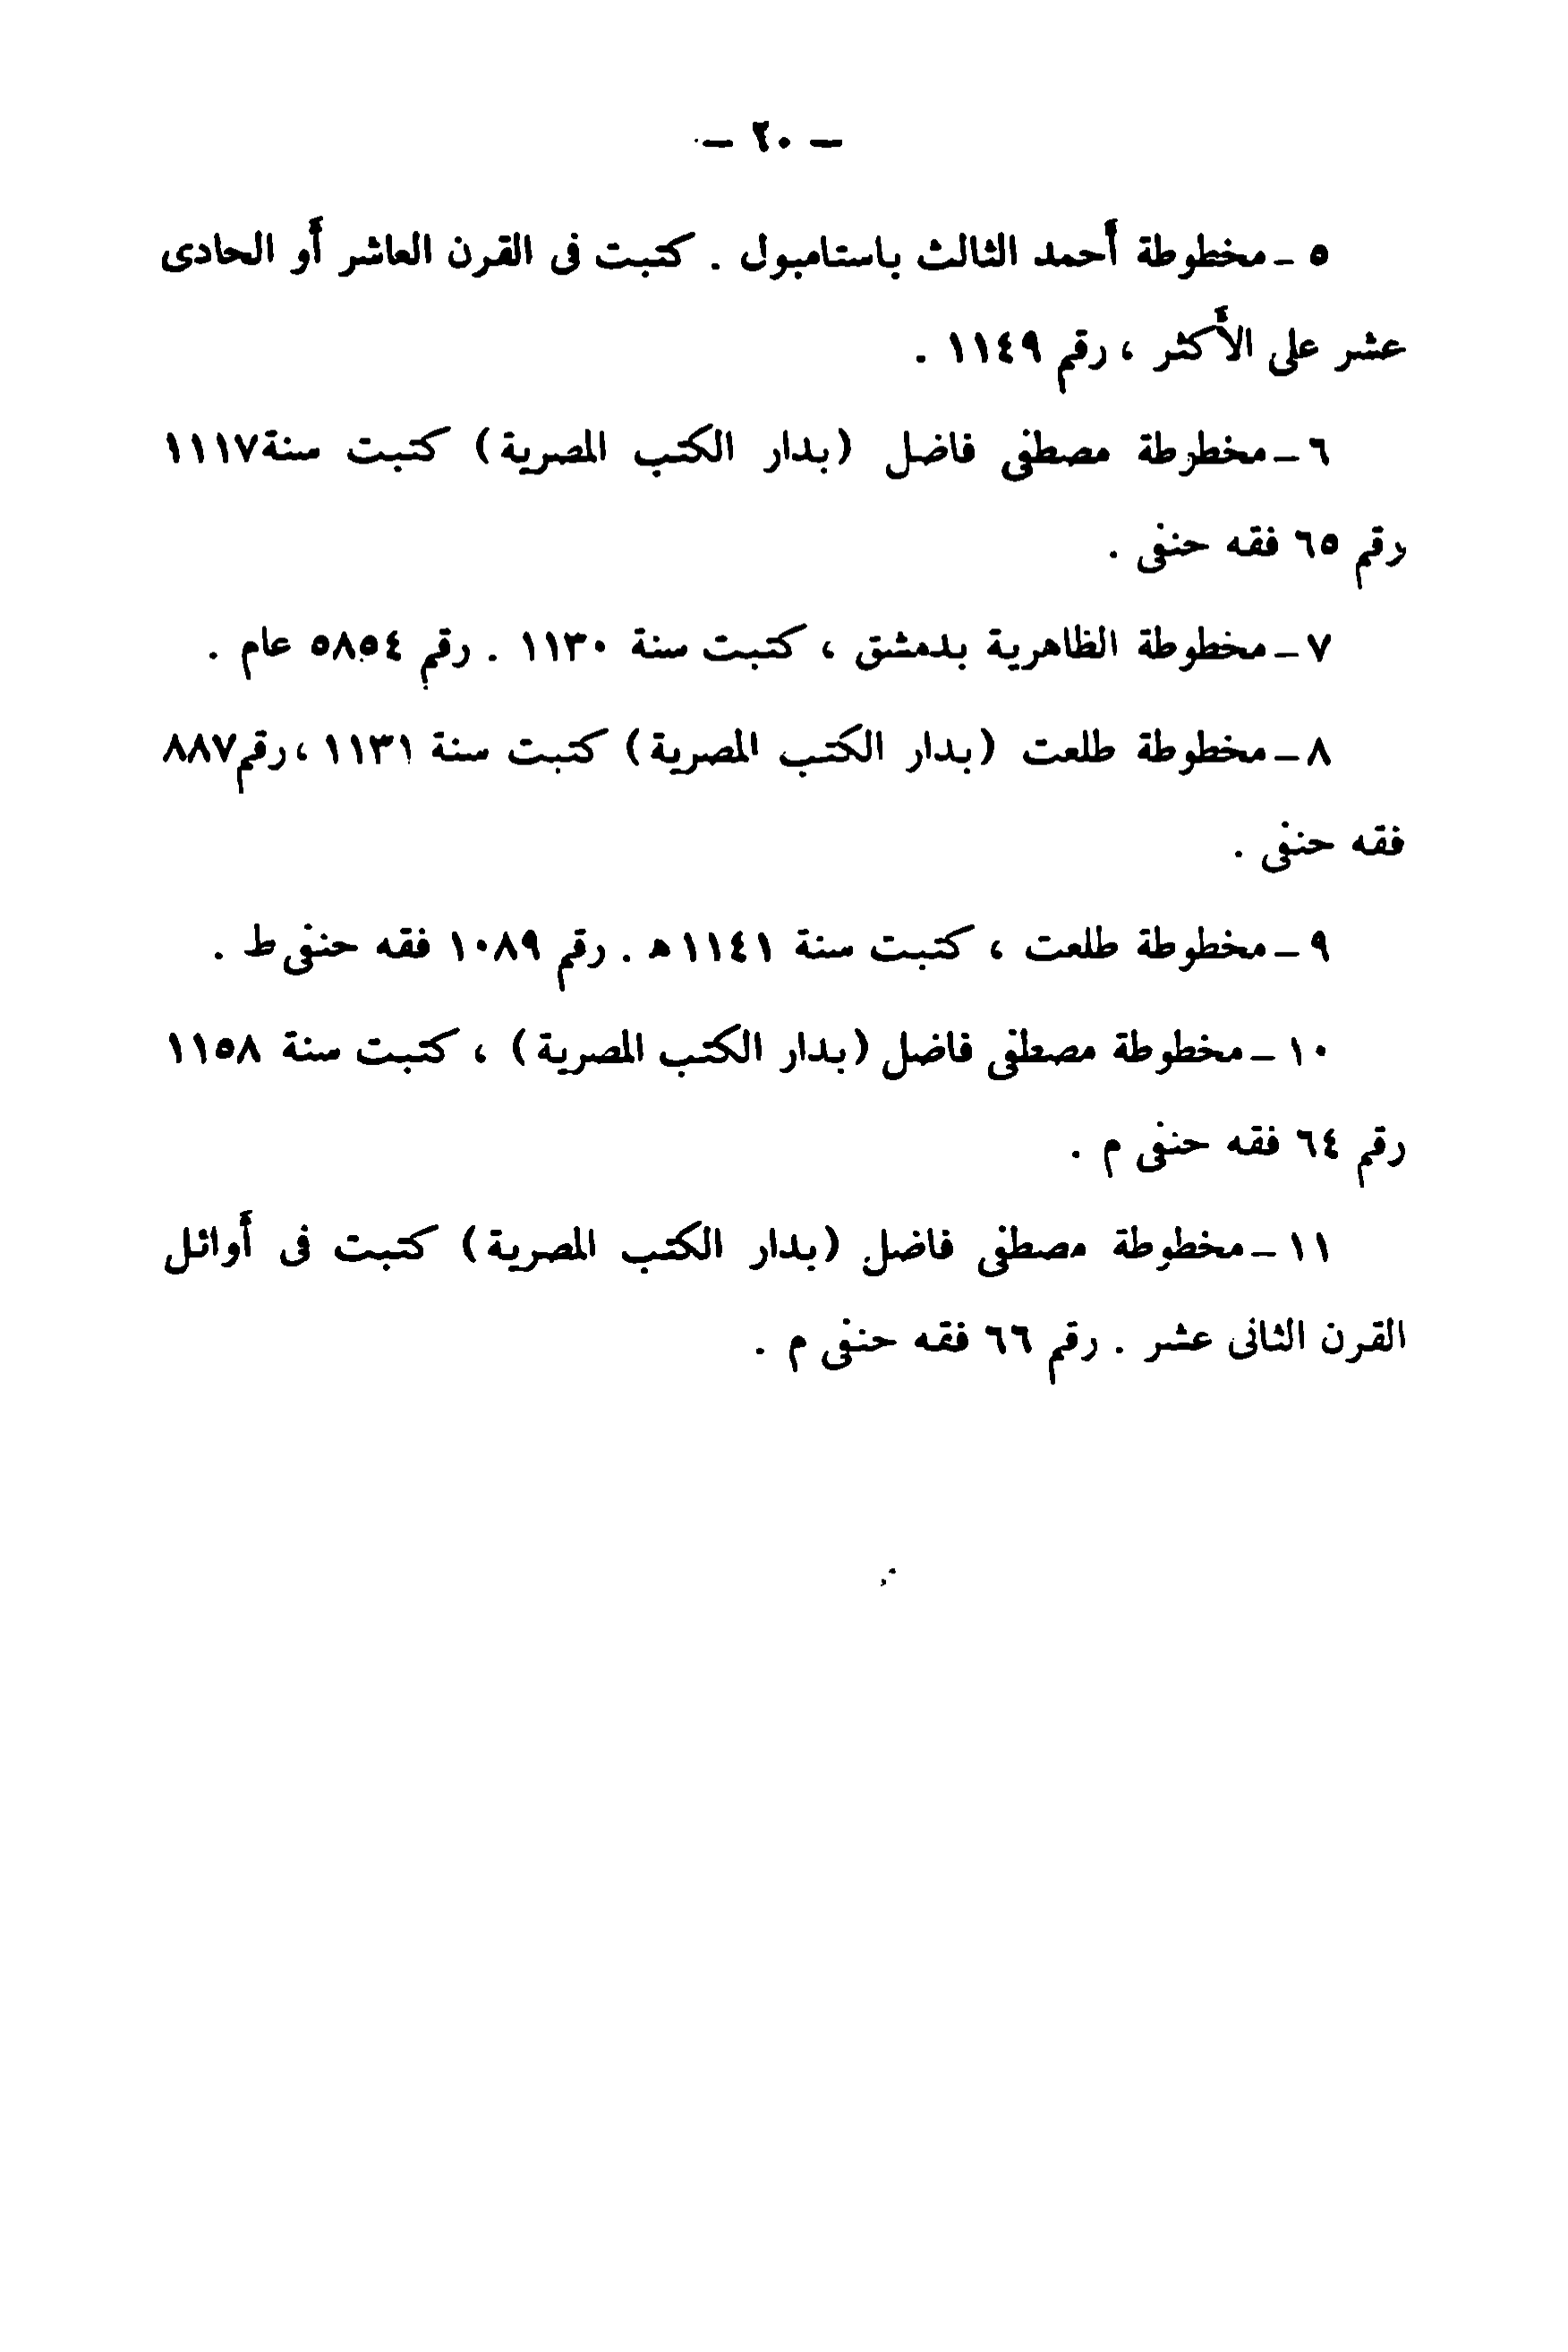 – ٢٠ –
٥ – مخطوطة أحمد الثالث باستامبول . كتبت فى القرن العاشر أو الحادى
عشر على الأكثر ، رقم ١١٤٩ .
٦ – مخطوطة مصطفى فاضل (بدار الكتب المصرية) كتبت سنة ١١١٧
رقم ٦٥ فقه حنفى .
٧ – مخطوطة الظاهرية بدمشق ، كتبت سنة ١١٣٠ . رقم ٥٨٥٤ عام .
٨ – مخطوطة طلعت (بدار الكتب المصرية) كتبت سنة ١١٣١ ، رقم ٨٨٧
فقه حنفى .
٩ – مخطوطة طلعت ، كتبت سنة ١١٤١ ه . رقم ١٠٨٩ فقه حنفى ط .
١٠ – مخطوطة مصطفى فاضل (بدار الكتب المصرية) ، كتبت سنة ١١٥٨
رقم ٦٤ فقه حنفى م .
١١ – مخطوطة مصطفى فاضل (بدار الكتب المصرية) كتبت فى أوائل
القرن الثانى عشر . رقم ٦٦ فقه حنفى م .